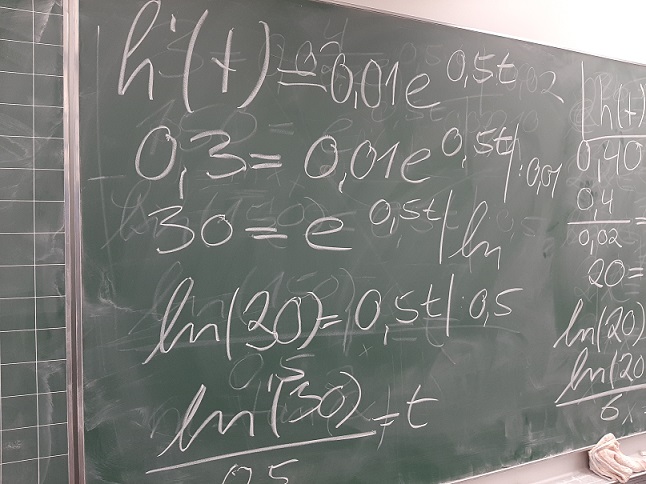 h'(t) = 0,01e^0,5t
0,3 = 0,01e^0,5t |:0,01
30 = e^0,5t | ln
ln(30) = 0,5t | :0,5
ln(30) / 0,5 = t
h(t)
0,40
0,4 / 0,02 =
20 =
ln(20)
ln(20